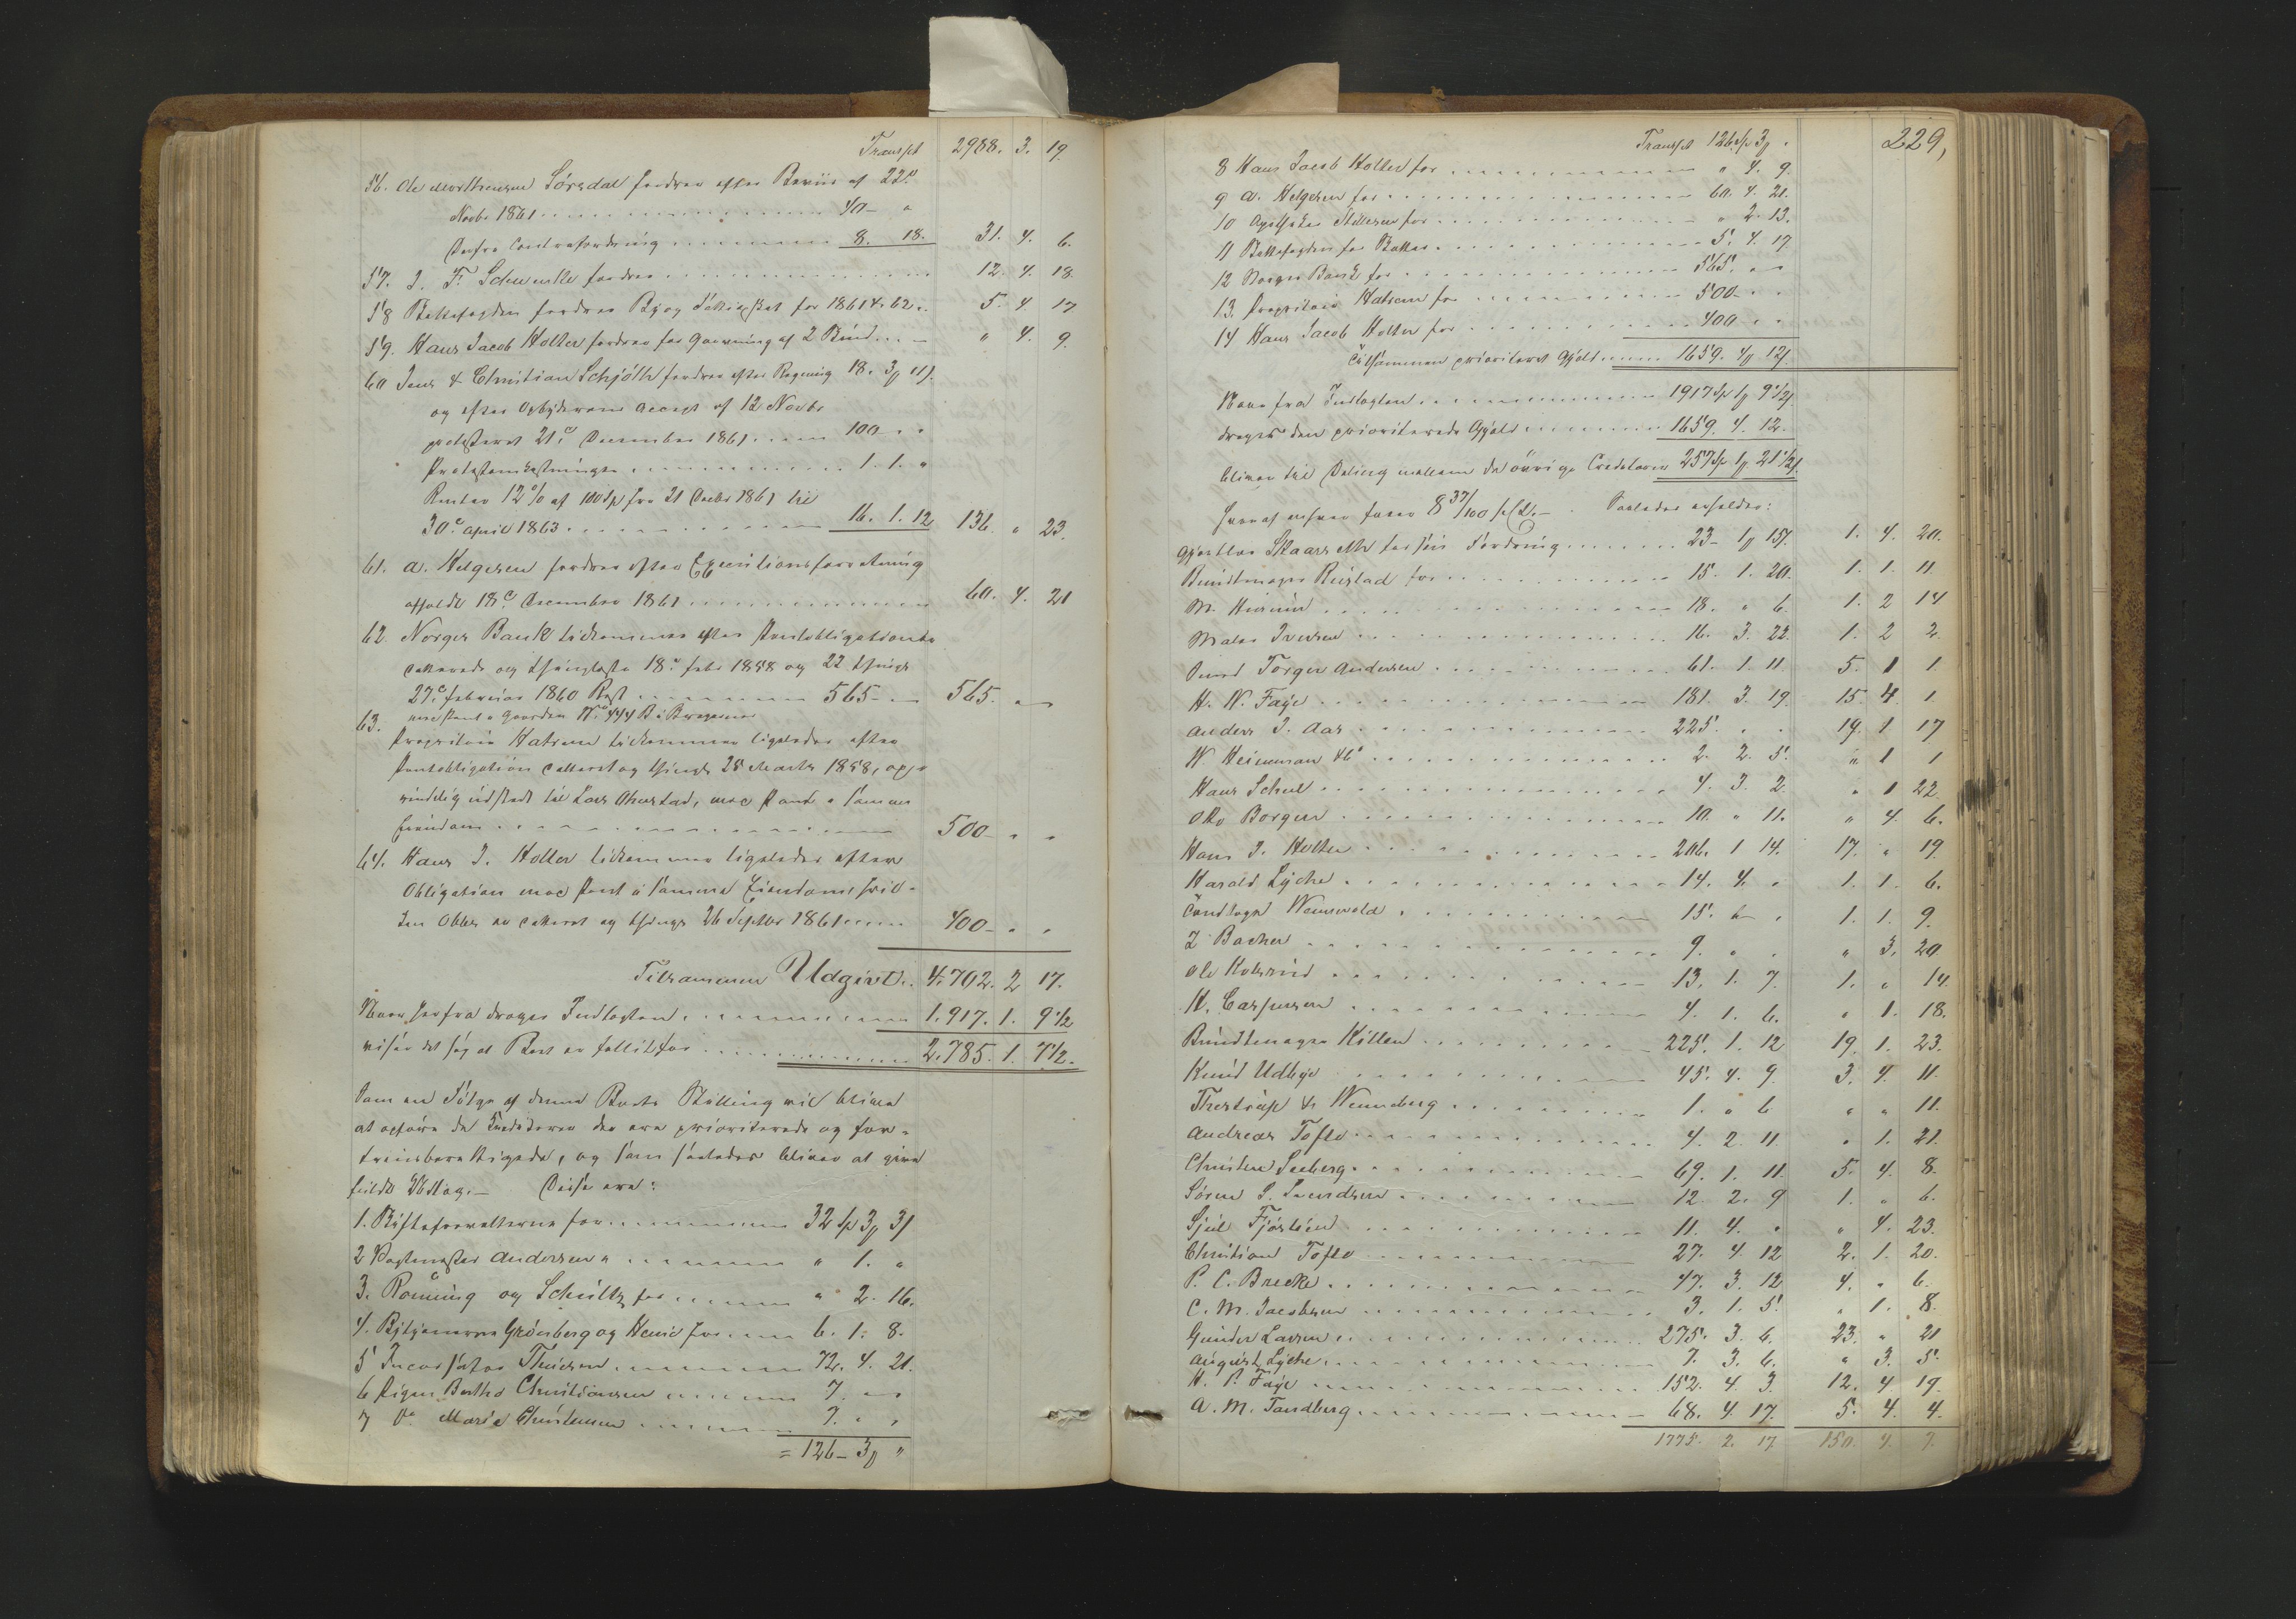 Transpt 2988. 3. 19.
56. Ole Mortensen Sörsdal fordrer efter Beviis af 22d
Novbr 1861 40 - "
Derfra Contrafordring 8. 18. 31. 4. 6.
57. J. F. Schwencke fordrer 12. 4. 18.
58 Bykfogden fordrer By og skat for 1861 & 62 5. 4 17
59. Hans Jacob Holter fordrer for af 2 " 4. 9.
60 Jens & Christian Schjöth fordrer efter Regning 18. 3 11
og efter Opbyderens Accept af 12 Novbr
protesteret 21d December 1861 100 " "
Protestomkostninger 1. 1. "
Renter 12 % af 100 Sp fra 21 Decbr 1861 til
30d April 1863 16. 1. 12 136. " 23.
61. A. Helgesen fordrer efter Executionsforretning
afholdt 18d December 1861 60. 4. 21
62. Norges Bank tilkommer efter Pantobligationer
daterede og thinglæste 18d Febr 1858 og 22 thingl
27d Februar 1860 Rest 565 - " 565. " "
med Pant i Gaarden No 444 B i Bragernes
63. Proprietair Hatrem tilkommer ligeledes efter
Pantobligation dateret og thingl 25 Marts 1858, op-
rindelig udstedt til Lars Ohnstad, med Pant i samme
Eiendom 500 - " "
64. Hans J. Holter tilkommer ligeledes efter
Obligation med Pant i samme Eiendom, hvil-
ken Obligr er dateret og thingl 26 Septbr 1861 400 - " "
Tilsammen Udgivt 4.702. 2 17.
Naar herfra drages Indtægten 1.917. 1. 9 1/2
viser det sig at Boet er fallit for 2.785. 1. 7 1/2.
Som en Følge af denne Boets Stilling vil blive
at opføre de Creditorer der ere prioriterede og for-
trinsberettigede, og som saaledes bliver at give
fuldt Udlæg. - Disse ere:
1. Skifteforvalteren for 32 Sp 3 3
2 Postmester Andersen " " 1. "
3. Rönning og Schultz for " 2. 16.
4. Grönberg og for 6. 1. 8.
5 Incassator Thuesen 72. 4. 21.
6 Pigen Berthe Christiansen 7. " "
7 Do Marie Christensen 7. " "
= 126 - 3 "
229,
Transpt 126 Sp 3 "
8 Hans Jacob Holter for " 4. 9.
9 A. Helgesen for 60. 4. 21.
10 Apotheker for " 2. 13.
11 Bykfogden for Skatter 5. 4. 17
12 Norges Bank for 565. " "
13. Proprietair Hatrem for 500 - " "
14 Hans Jacob Holter for 400 " "
Tilsammen prioriteret Gjæld 1659. 4 12
Naar fra Indtægten 1917 Sp 1 9 1/2
drages den prioriterede Gjæld 1659. 4. 12.
bliver til Deling mellem de øvrige Creditorer 257 Sp 1 21 1/2
hvoraf enhver faaer 8 37/100 pCt. - Saaledes erholder:
Gjertler Skaarseth for sin Fordring 23 - 1 15. 1. 4. 20.
Bundtmager Ruistad for 15. 1. 20. 1. 1. 11.
M. 18. " 6. 1. 2 14
Maler Iversen 16. 3. 22. 1. 2 2.
Torger Andersen 61. 1. 11. 5. 1 1.
H. W. Faye 181. 3. 19. 15. 4. 1.
Anders J. Aas 225. " " 19. 1. 17
W. Heineman & Co 2. 2. 5. " 1 1
Hans Schul 4. 3. 2. " 1 22.
Otto Borgen 10. " 11. " 4. 6.
Hans J. Holter 206. 1 14. 17. " 19.
Harald Lyche 14. 4. " 1. 1. 6.
Wennevold 15. " 1. 1. 9.
Z Bacher 9. " " " 3. 20.
Ole Kolsrud 13. 1. 7. 1. " 14.
H. Caspersen 4. 1. 6. " 1. 18.
Bundtmager Kittler 225. 1. 12 19. 1. 23.
Knud Udbye 45. 4. 9. 3. 4. 11.
Thestrup & Wenneberg 1. " 6 " " 11.
Andreas Tofte 4. 2. 11. " 1. 21.
Christen Seeberg 69. 1. 11. 5. 4. 8.
Sören S. Svendsen 12. 2. 9 1. " 6.
Sjul Fjösteen 11. 4. " " 4. 23.
Christian Tofte 27. 4 12 2. 1. 20.
P. C. Brecke 47. 3. 12 4. " 6.
C. M. Jacobsen 3. 1. 5. " 1. 8.
Gunder Larsen 275. 3. 6. 23. " 21
August Lyche 7. 3. 6. " 3. 5.
H. P. Faye 152. 4. 3. 12. 4 19.
A. M. Tandberg 68. 4. 17. 5. 4. 4.
1775. 2. 17 150. 4. 7.